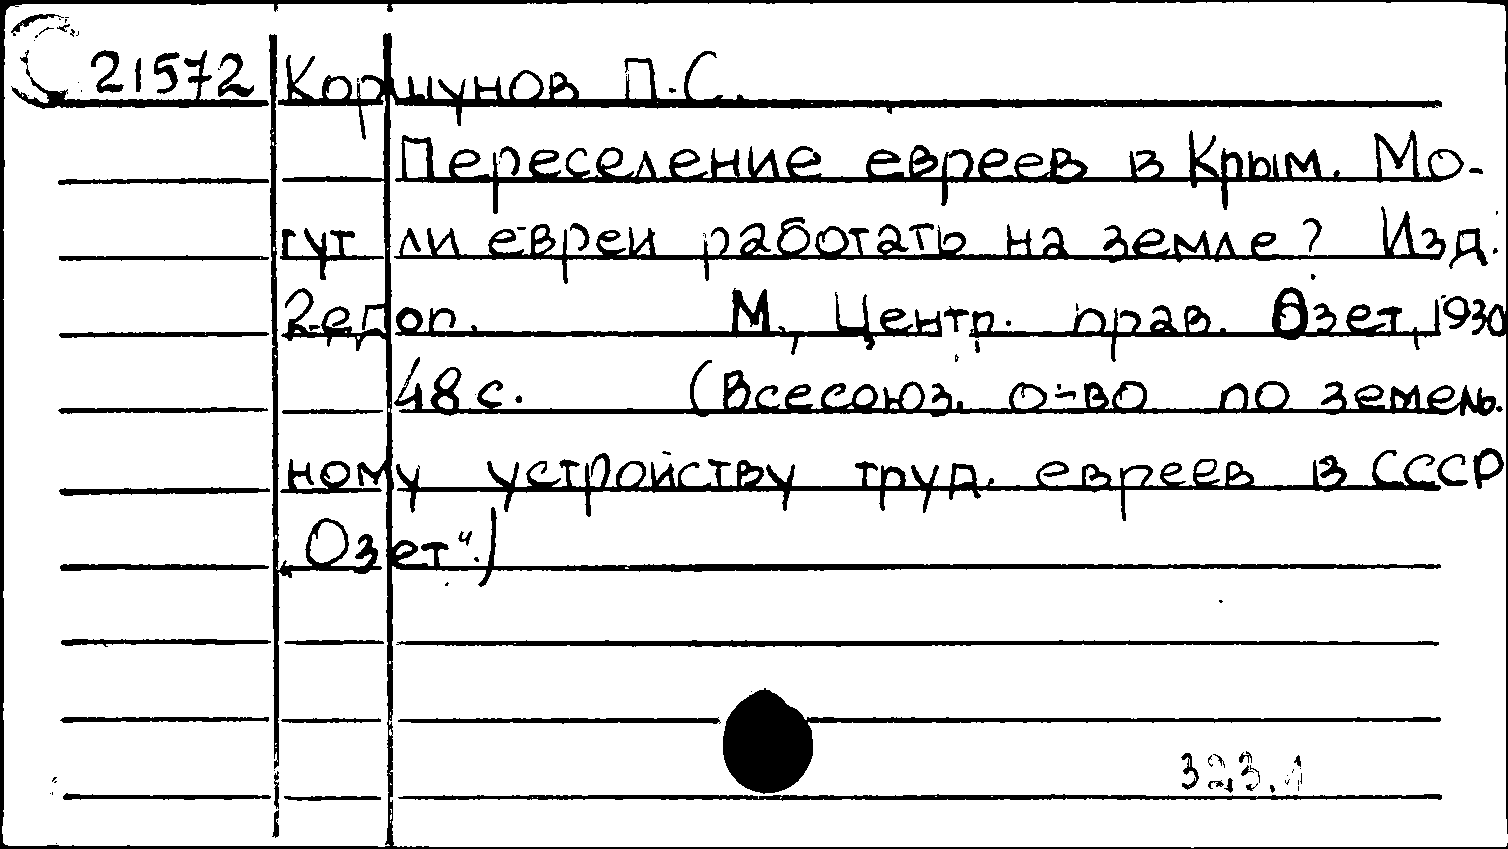 21572 Коршунов П.С.
Переселение евреев в Крым. Мо-
гут ли евреи работать на земле? Изд.
2-е доп. М., Центр. прав. Озет, 1930
48 с. (Всесоюз. о-во по земель-
ному устройству труд. евреев в СССР
„Озет“.)
323.1